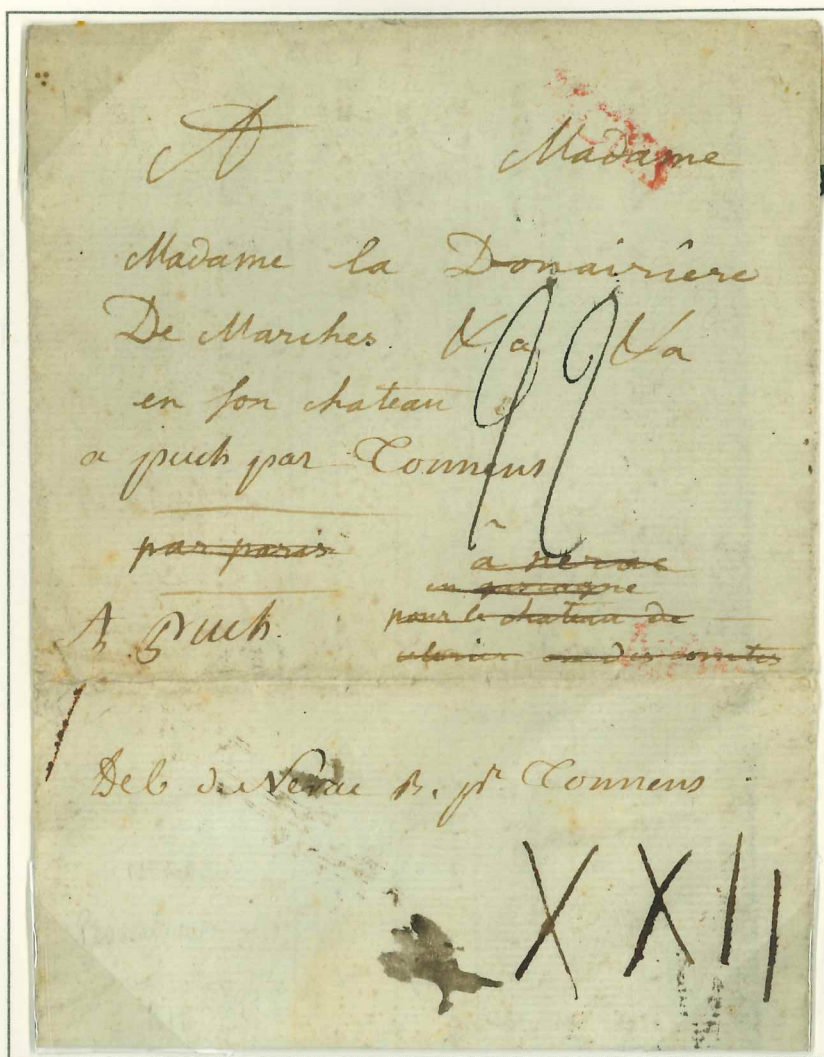 A Madame
Madame la Donairière
De Marches &a &a
en son chateau
a puch par Tonneins
22
par paris
à nerac
en gascogne
pour le chateau de
A Puch.
Deb de Nerac B. pr Tonneins
XXII